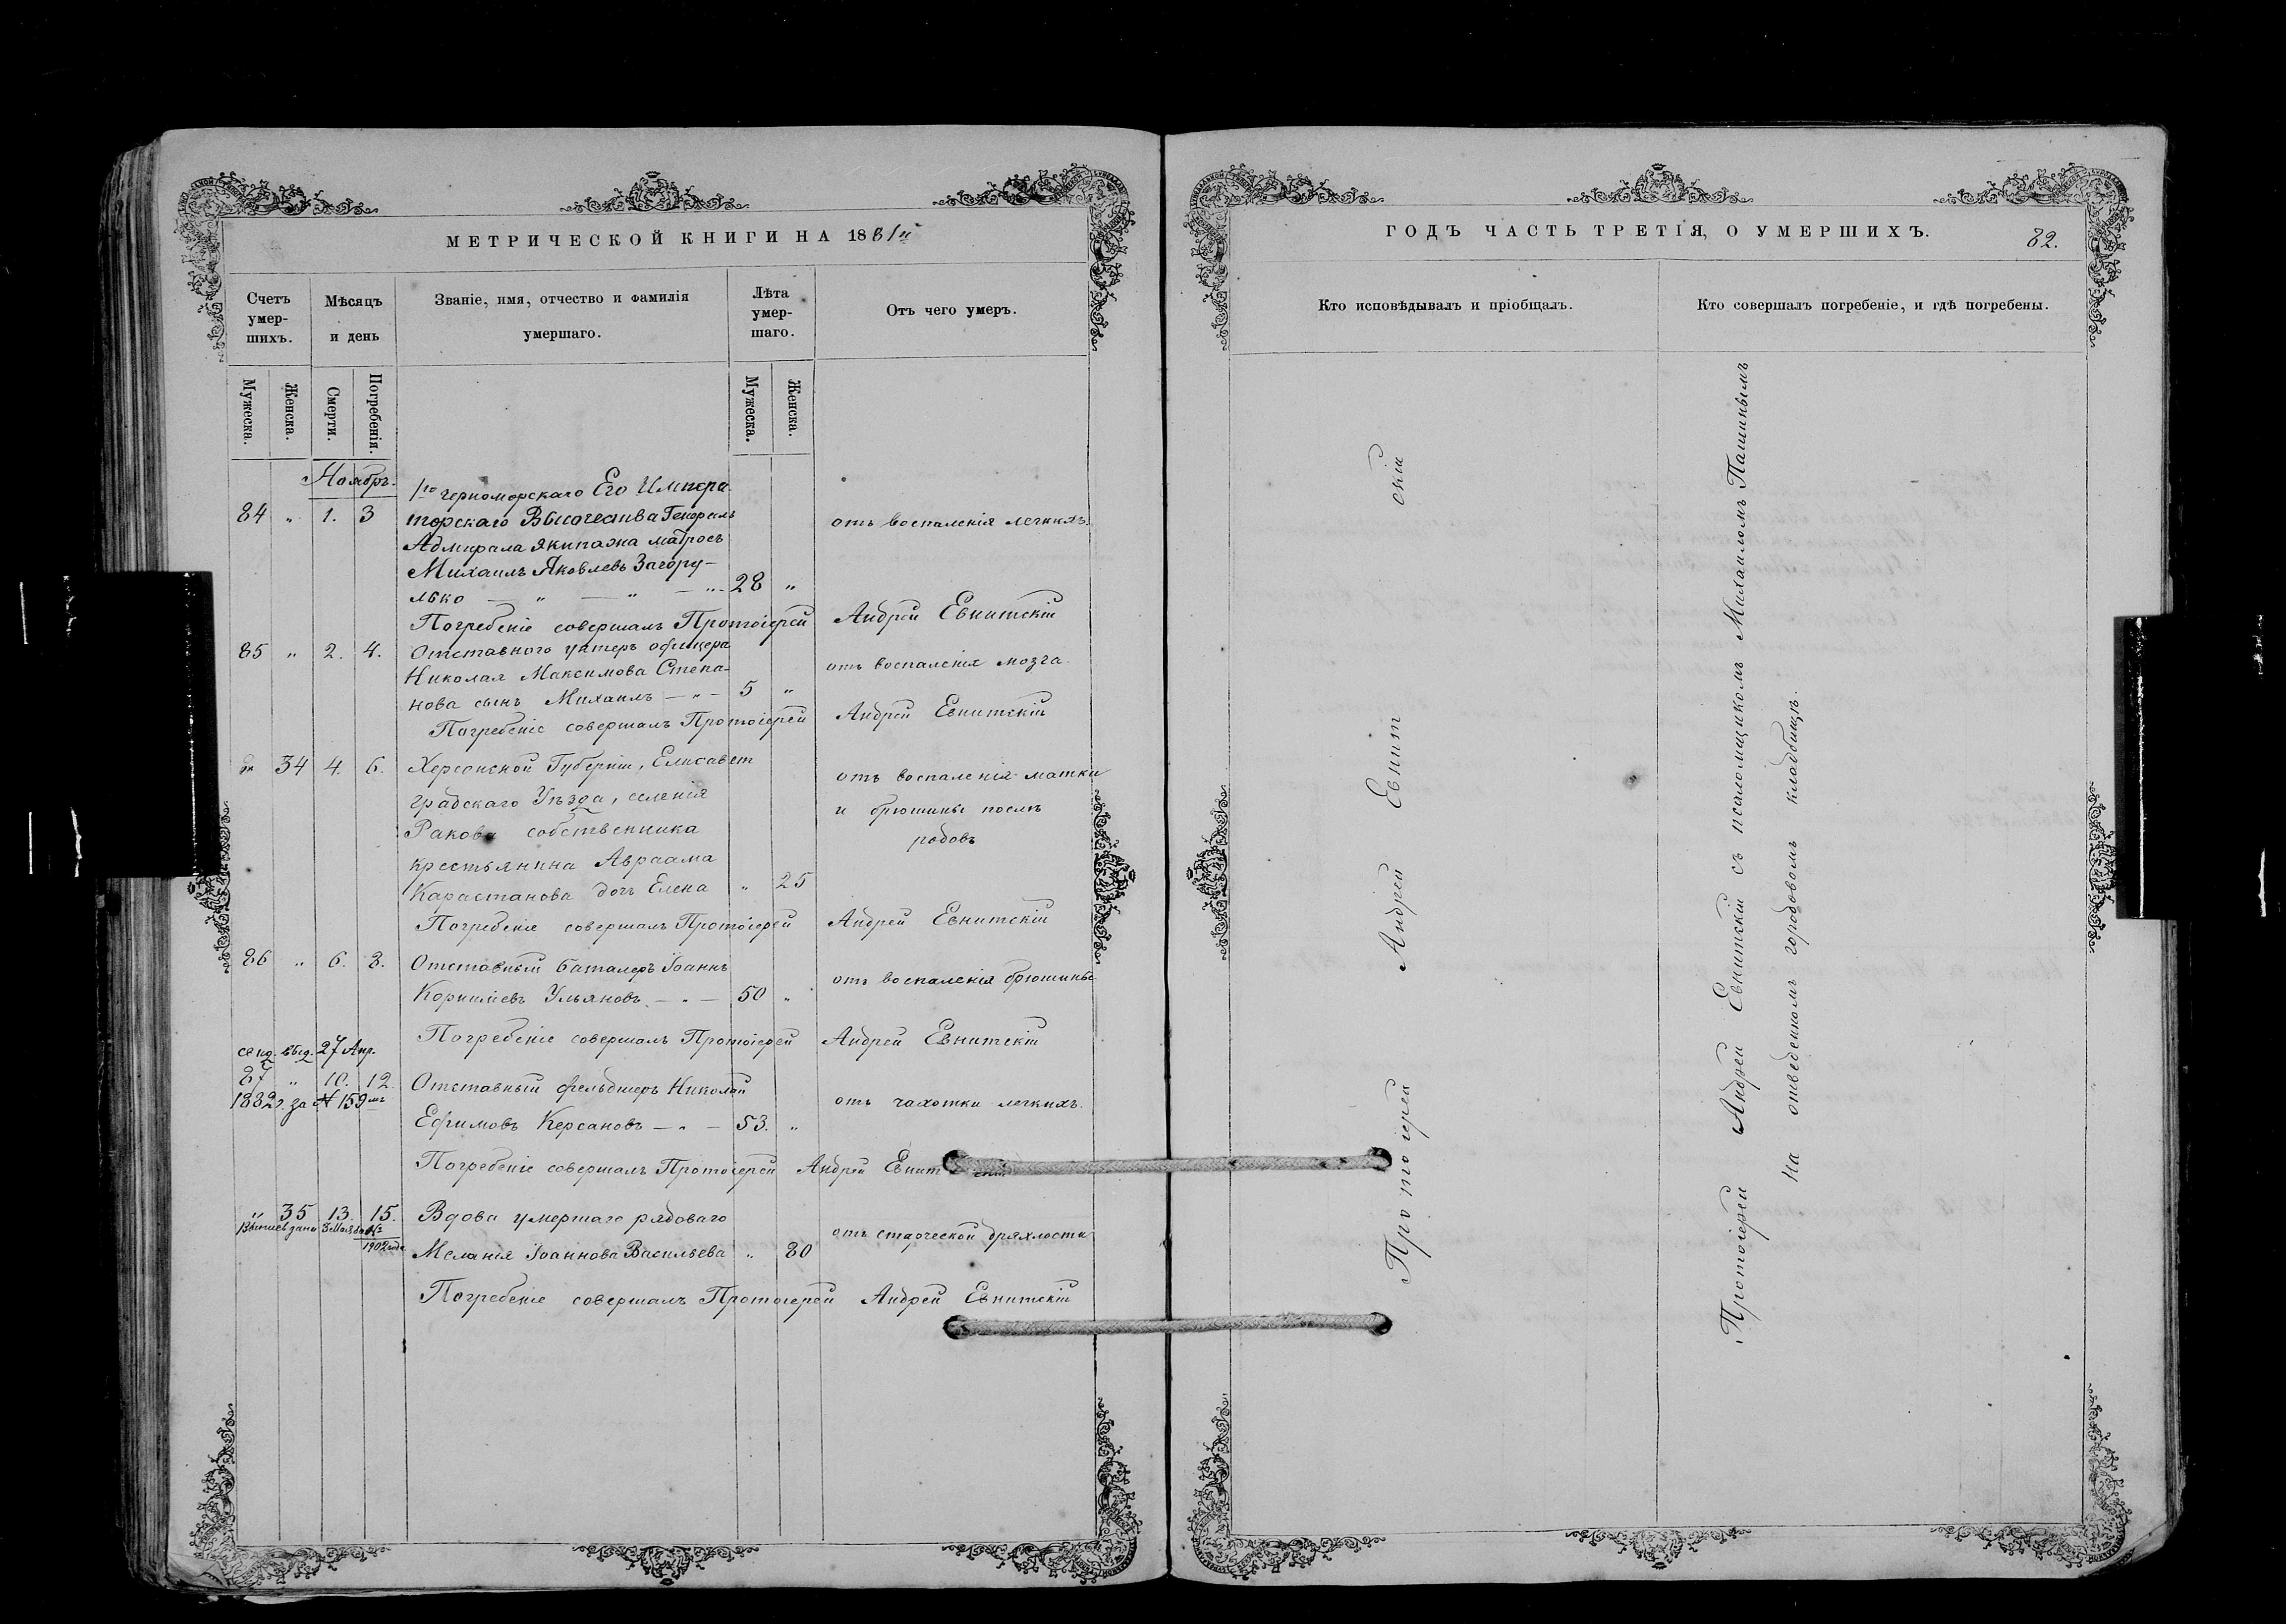 МЕТРИЧЕСКОЙ КНИГИ НА 1881й
Счетъ умер-шихъ.
Мѣсяцъ и день
Званіе, имя, отчество и фамилія умершаго.
Лѣта умер-шаго.
Отъ чего умеръ.
Мужеска.
Женска.
Смерти.
Погребенія.
Мужеска.
Женска.
Ноябрь.
1го Черноморскаго Его Импера-
84 " 1. 3 торскаго Высочества Генералъ отъ воспаленія легкихъ.
Адмирала Экипажа матросъ
Михаилъ Яковлевъ Загору-
лько — " — " — " - 28 "
Погребеніе совершалъ Протоіерей Андрей Евнитскій
85 " 2. 4. Отставного унтеръ офицера
Николая Максимова Степа- отъ воспаленія мозга.
нова сынъ Михаилъ — " — 5 "
Погребеніе совершалъ Протоіерей Андрей Евнитскій
" 34 4. 6. Херсонской Губерніи, Елисавет отъ воспаленія матки
градскаго Уѣзда, селенія и брюшины послѣ
Ракова собственника родовъ
крестьянина Авраама
Карастанова дочь Елена " 25
Погребеніе совершалъ Протоіерей Андрей Евнитскій
86 " 6. 8. Отставный баталеръ Іоаннъ отъ воспаленія брюшины
Ульяновъ — " — 50 "
Погребеніе совершалъ Протоіерей Андрей Евнитскій
выд. 27 Апр.
87 " 10. 12. Отставный фельдшеръ Николай
1882 г. за № 159мъ отъ чахотки легкихъ.
Ефимовъ Керсановъ — " — 53. "
Погребеніе совершалъ Протоіерей Андрей Евнитскій
" 35 13. 15. Вдова умершаго рядоваго
1902 года отъ старческой дряхлости
Меланія Іоаннова Васильева " 80
Погребеніе совершалъ Протоіерей Андрей Евнитскій
ГОДЪ ЧАСТЬ ТРЕТІЯ, О УМЕРШИХЪ.
82.
Кто исповѣдывалъ и пріобщалъ.
Кто совершалъ погребеніе, и гдѣ погребены.
Протоіерей Андрей Евнитскій
Протоіерей Андрей Евнитскій съ псаломщикомъ Михаиломъ Пашинымъ
На отведенномъ городовомъ кладбищѣ.